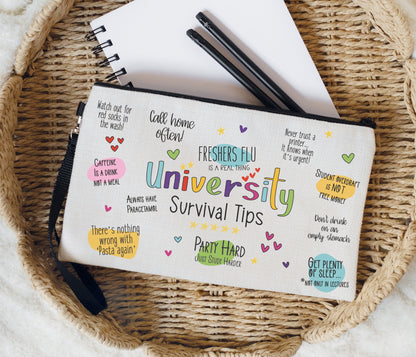 Watch out for
red socks in
the wash!
Call home
often!
FRESHERS FLU
IS A REAL THING
Never trust a
printer...
it knows when
it's urgent!
CAFFEINE
IS A DRINK
NOT A MEAL
University
Survival Tips
STUDENT OVERDRAFT
IS NOT
FREE MONEY
ALWAYS HAVE
PARACETAMOL
Don't drink
on an
empty stomach
There's nothing
wrong with
"Pasta again"
PARTY HARD
JUST STUDY HARDER
GET PLENTY
OF SLEEP...
*NOT ONLY IN LECTURES